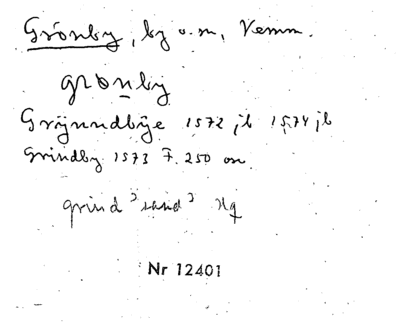 Grönby, by o. sn, Vemm.
grønby
Gröynndbÿe 1572 jb 1574 jb
Grindby 1573 F. 250 on.
grind 'sand' Hq
Nr 12401